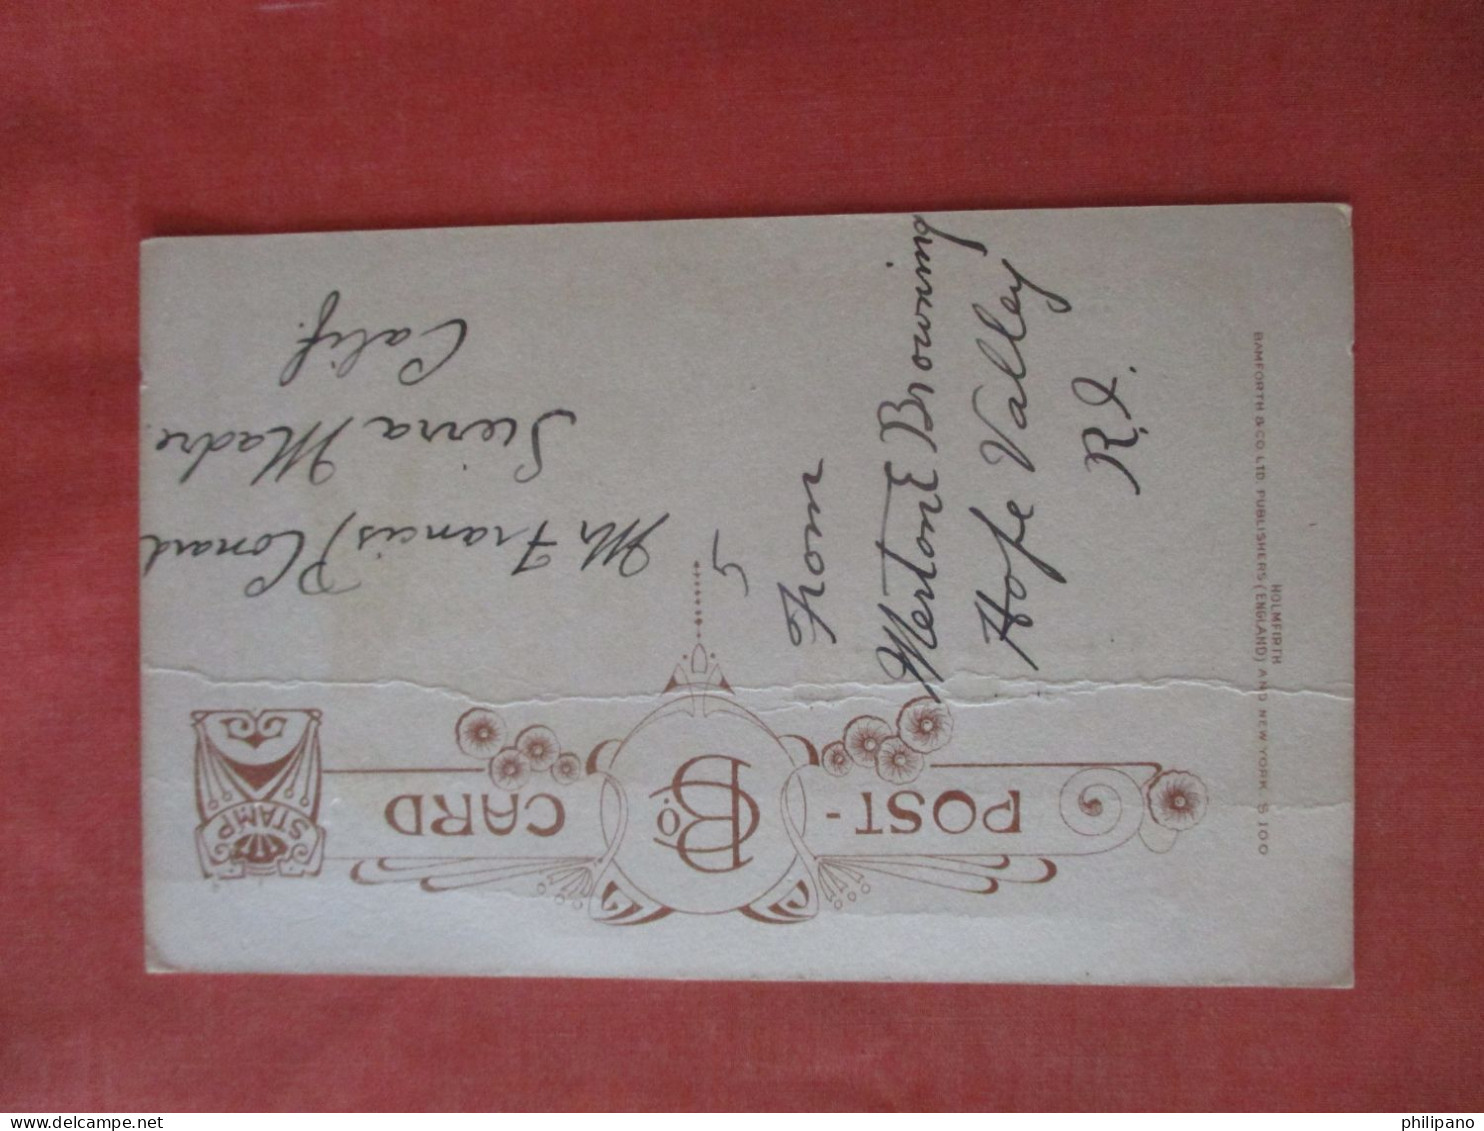 POST-CARD
B Co
STAMP
From
Merton E Browning
Hope Valley
R.I.
5
Mr Francis P Conard
Sierra Madre
Calif.
BAMFORTH & CO LTD PUBLISHERS (ENGLAND) AND NEW YORK S 100
HOLMFIRTH
philipano
www.delcampe.net